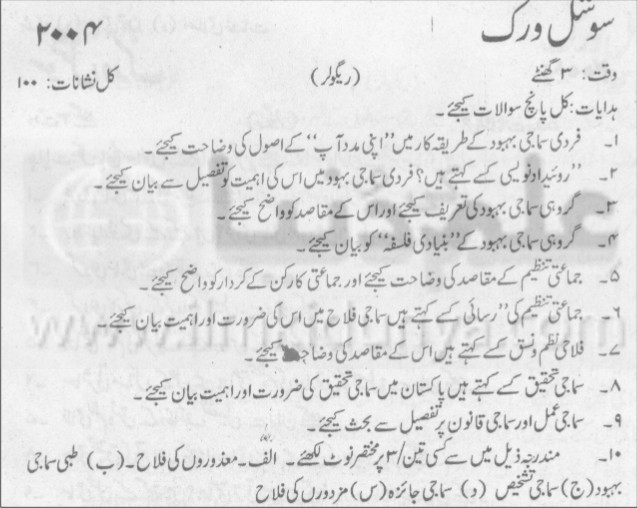 سوشل ورک ۲۰۰۴
وقت: ۳ گھنٹے (ریگولر) کل نشانات: ۱۰۰
ہدایات: کل پانچ سوالات کیجئے۔
۱۔ فردی سماجی بہبود کے طریقہ کار میں "اپنی مدد آپ" کے اصول کی وضاحت کیجئے۔
۲۔ روئیداد نویسی کسے کہتے ہیں؟ فردی سماجی بہبود میں اس کی اہمیت کو تفصیل سے بیان کیجئے۔
۳۔ گروہی سماجی بہبود کی تعریف کیجئے اور اس کے مقاصد کو واضح کیجئے۔
۴۔ گروہی سماجی بہبود کے "بنیادی فلسفہ" کو بیان کیجئے۔
۵۔ جماعتی تنظیم کے مقاصد کی وضاحت کیجئے اور جماعتی کارکن کے کردار کو واضح کیجئے۔
۶۔ جماعتی تنظیم کی "رسائی کے کہتے ہیں سماجی فلاح میں اس کی ضرورت اور اہمیت بیان کیجئے۔
۷۔ فلاحی نظم و نسق کے کہتے ہیں اس کے مقاصد کی وضاحت کیجئے۔
۸۔ سماجی تحقیق کے کہتے ہیں پاکستان میں سماجی تحقیق کی ضرورت اور اہمیت بیان کیجئے۔
۹۔ سماجی عمل اور سماجی قانون پر تفصیل سے بحث کیجئے۔
۱۰۔ مندرجہ ذیل میں سے کسی تین/۳ پر مختصر نوٹ لکھئے۔ الف۔ معذوروں کی فلاح۔ (ب) طبی سماجی
بہبود (ج) سماجی تشخیص (د) سماجی جائزہ (س) مزدورں کی فلاح
علم کی دنیا
www.ilmkidunya.com